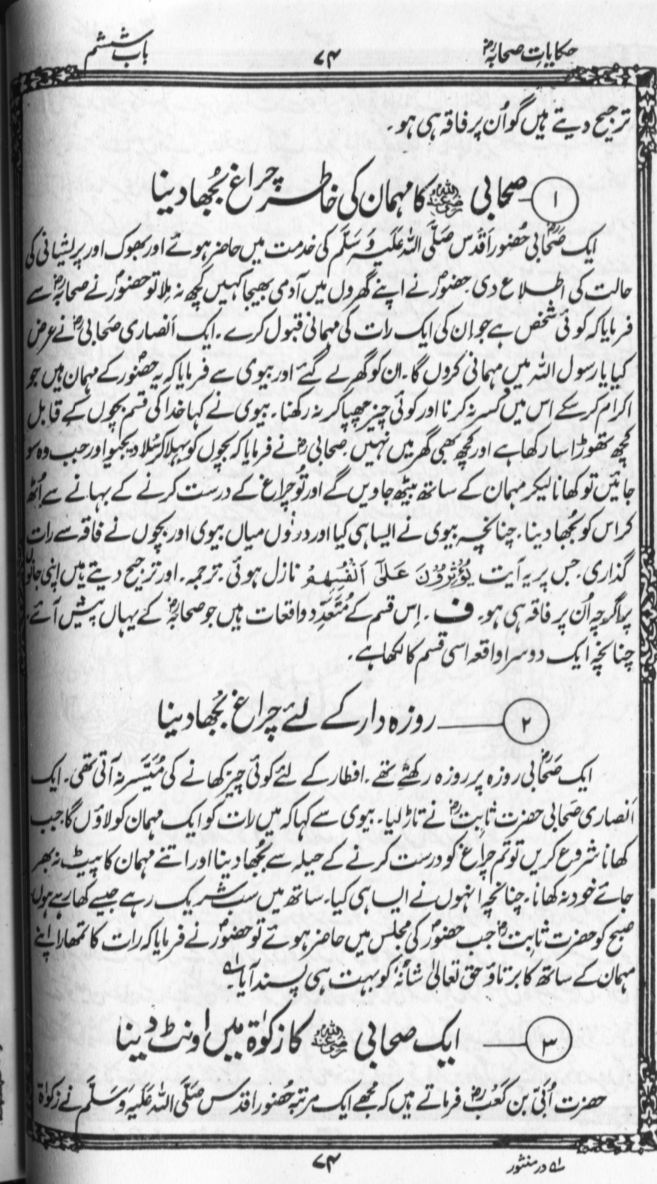 حکایاتِ صحابہؓ ۷۴ باب ششم
ترجیح دیتے ہیں گو اُن پر فاقہ ہی ہو۔
۱ ـ صحابی رضی اللہ عنہ کا مہمان کی خاطر چراغ بُجھا دینا
ایک صحابیؓ حضور اقدس صَلَّی اللہُ عَلَیْہِ وَسَلَّم کی خدمت میں حاضر ہوئے اور بھوک اور پریشانی کی
حالت کی اطلاع دی۔ حضورؐ نے اپنے گھروں میں آدمی بھیجا کہیں کچھ نہ ملا تو حضورؐ نے صحابہؓ سے
فرمایا کہ کوئی شخص ہے جو ان کی ایک رات کی مہمانی قبول کرے۔ ایک انصاری صحابیؓ نے عرض
کیا یا رسول اللہ میں مہمانی کروں گا۔ ان کو گھر لے گئے اور بیوی سے فرمایا کہ یہ حضورؐ کے مہمان ہیں جو
اکرام کر سکے اس میں کسر نہ کرنا اور کوئی چیز چھپا کر نہ رکھنا۔ بیوی نے کہا خدا کی قسم بچوں کے قابل
کچھ تھوڑا سا رکھا ہے اور کچھ بھی گھر میں نہیں صحابیؓ نے فرمایا کہ بچوں کو بہلا کر سُلا دیجیو اور جب وہ سو
جائیں تو کھانا لیکر مہمان کے ساتھ بیٹھ جاویں گے اور تُو چراغ کے درست کرنے کے بہانے سے اُٹھ
کر اس کو بجھا دینا۔ چنانچہ بیوی نے ایسا ہی کیا اور دونوں میاں بیوی اور بچوں نے فاقہ سے رات
گذاری۔ جس پر یہ آیت یُؤْثِرُوْنَ عَلٰٓی اَنْفُسِہِمْ نازل ہوئی۔ ترجمہ۔ اور ترجیح دیتے ہیں اپنی جانوں
پر اگرچہ اُن پر فاقہ ہی ہو۔ ف۔ اِس قسم کے مُتَعَدِّد واقعات ہیں جو صحابہؓ کے یہاں پیش آئے۔
چنانچہ ایک دوسرا واقعہ اسی قسم کا لکھا ہے۔
۲ ـ روزہ دار کے لئے چراغ بُجھا دینا
ایک صحابیؓ روزہ پر روزہ رکھتے تھے۔ افطار کے لئے کوئی چیز کھانے کی مُیَسّر نہ آتی تھی۔ ایک
انصاری صحابی حضرت ثابتؓ نے تاڑ لیا۔ بیوی سے کہا کہ میں رات کو ایک مہمان کو لاؤں گا جب
کھانا شروع کریں تو تم چراغ کو درست کرنے کے حیلہ سے بُجھا دینا اور اتنے مہمان کا پیٹ نہ بھر
جائے خود نہ کھانا۔ چنانچہ انہوں نے ایسا ہی کیا۔ ساتھ میں سب شریک رہے جیسے کھا رہے ہوں۔
صبح کو حضرت ثابتؓ جب حضورؐ کی مجلس میں حاضر ہوئے تو حضورؐ نے فرمایا کہ رات کا تمھارا اپنے
مہمان کے ساتھ کا برتاؤ حق تعالیٰ شانہٗ کو بہت ہی پسند آیا۔؂۱
۳ ـ ایک صحابی رضی اللہ عنہ کا زکوٰۃ میں اونٹ دینا
حضرت اُبَیّ بن کَعْبؓ فرماتے ہیں کہ مجھے ایک مرتبہ حضور اقدس صَلَّی اللہُ عَلَیْہِ وَسَلَّم نے زکوٰۃ
؂۱ در منثور ۷۴